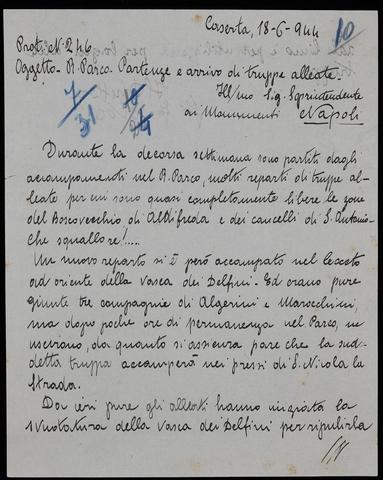 Caserta, 18-6-944
10
Prot. N. 246
Oggetto - R. Parco. Partenze e arrivo di truppe alleate.
Ill/mo Sig. Soprintendente
ai Monumenti Napoli
7/31
Durante la decorsa settimana sono partiti dagli
accampamenti nel R. Parco, molti reparti di truppe al-
leate per cui sono quasi completamente libere le zone
del Boscovecchio, di Aldifreda e dei cancelli di S. Antonio-
che squallore!....
Un nuovo reparto si è però accampato nel
ad oriente della vasca dei Delfini. Ed erano pure
giunte tre compagnie di Algerini e Marocchini,
ma dopo poche ore di permanenza nel Parco, ne
uscirono, da quanto si assicura pare che la sud-
detta truppa accamperà nei pressi di S. Nicola la
Strada.
Da ieri pure gli alleati hanno iniziata la
svuotatura della vasca dei Delfini per ripulirla